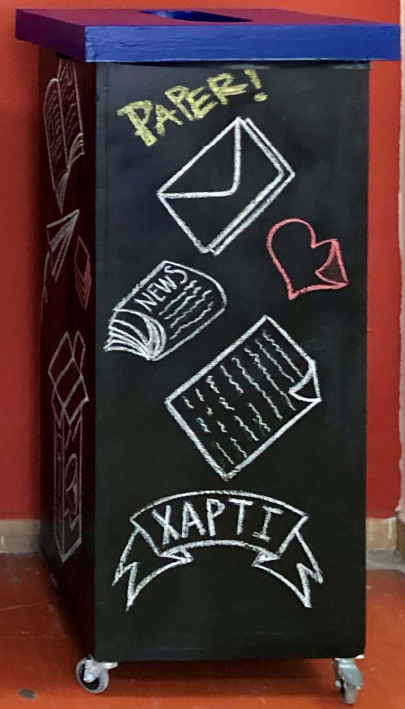 PAPER!
NEWS
ΧΑΡΤΙ